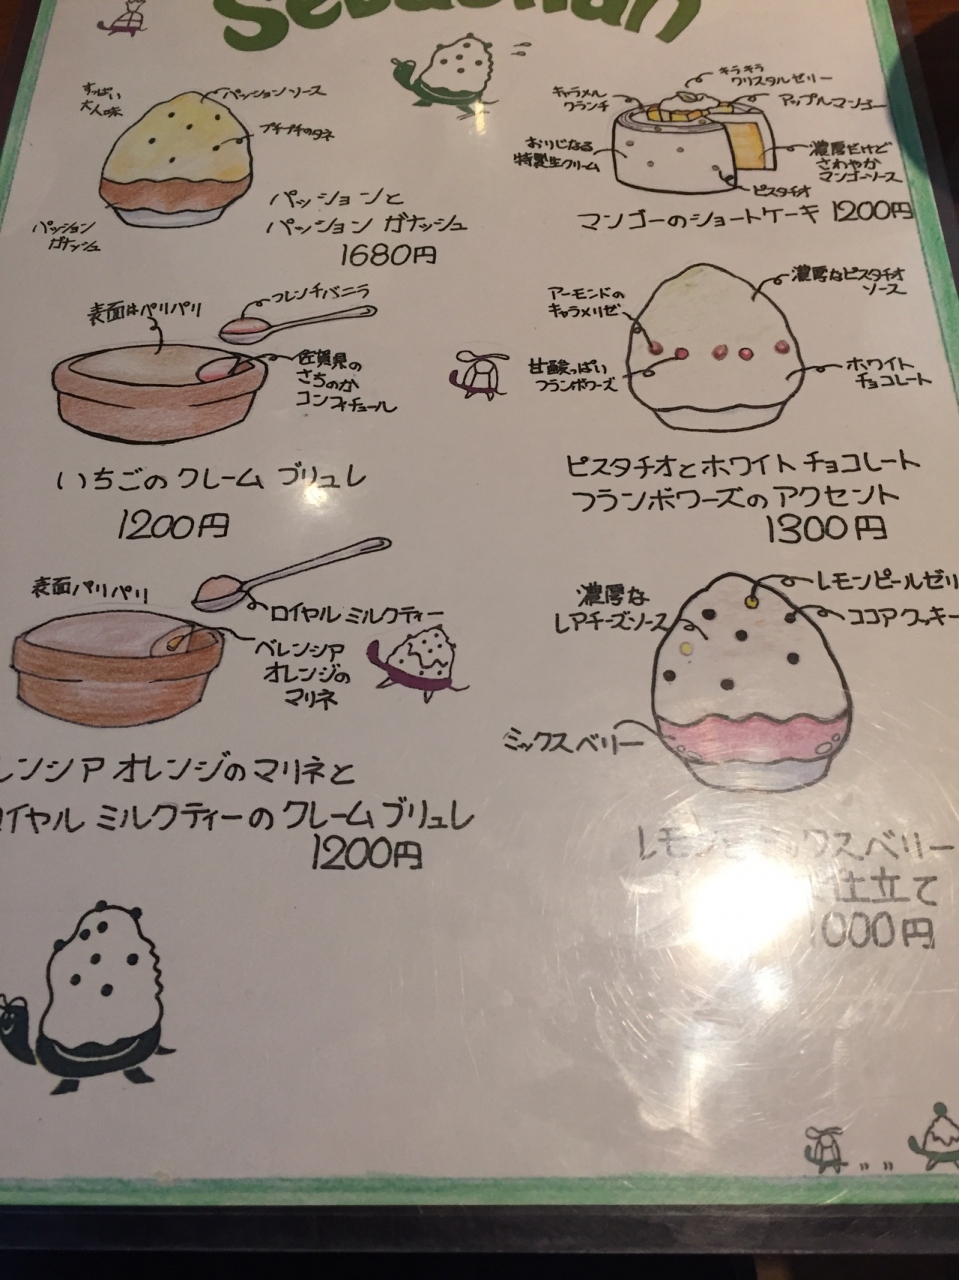 Sebastian
すっぱい
大人味
パッションソース
プチプチのタネ
パッション
ガナッシュ
パッションと
パッション ガナッシュ
1680円
キャラメル
クランチ
キラキラ
クリスタルゼリー
アップルマンゴー
おりじなる
特製生クリーム
濃厚だけど
さわやか
マンゴーソース
ピスタチオ
マンゴーのショートケーキ 1200円
表面はパリパリ
フレンチバニラ
佐賀県の
さちのか
コンフィチュール
いちごの クレーム ブリュレ
1200円
アーモンドの
キャラメリゼ
濃厚なピスタチオ
ソース
甘酸っぱい
フランボワーズ
ホワイト
チョコレート
ピスタチオとホワイト チョコレート
フランボワーズの アクセント
1300円
表面パリパリ
ロイヤル ミルクティー
ベレンシア
オレンジの
マリネ
レンシア オレンジのマリネと
イヤル ミルクティーの クレーム ブリュレ
1200円
濃厚な
レアチーズソース
レモンピールゼリ
ココアクッキー
ミックスベリー
レモン
クスベリー
仕立て
000円